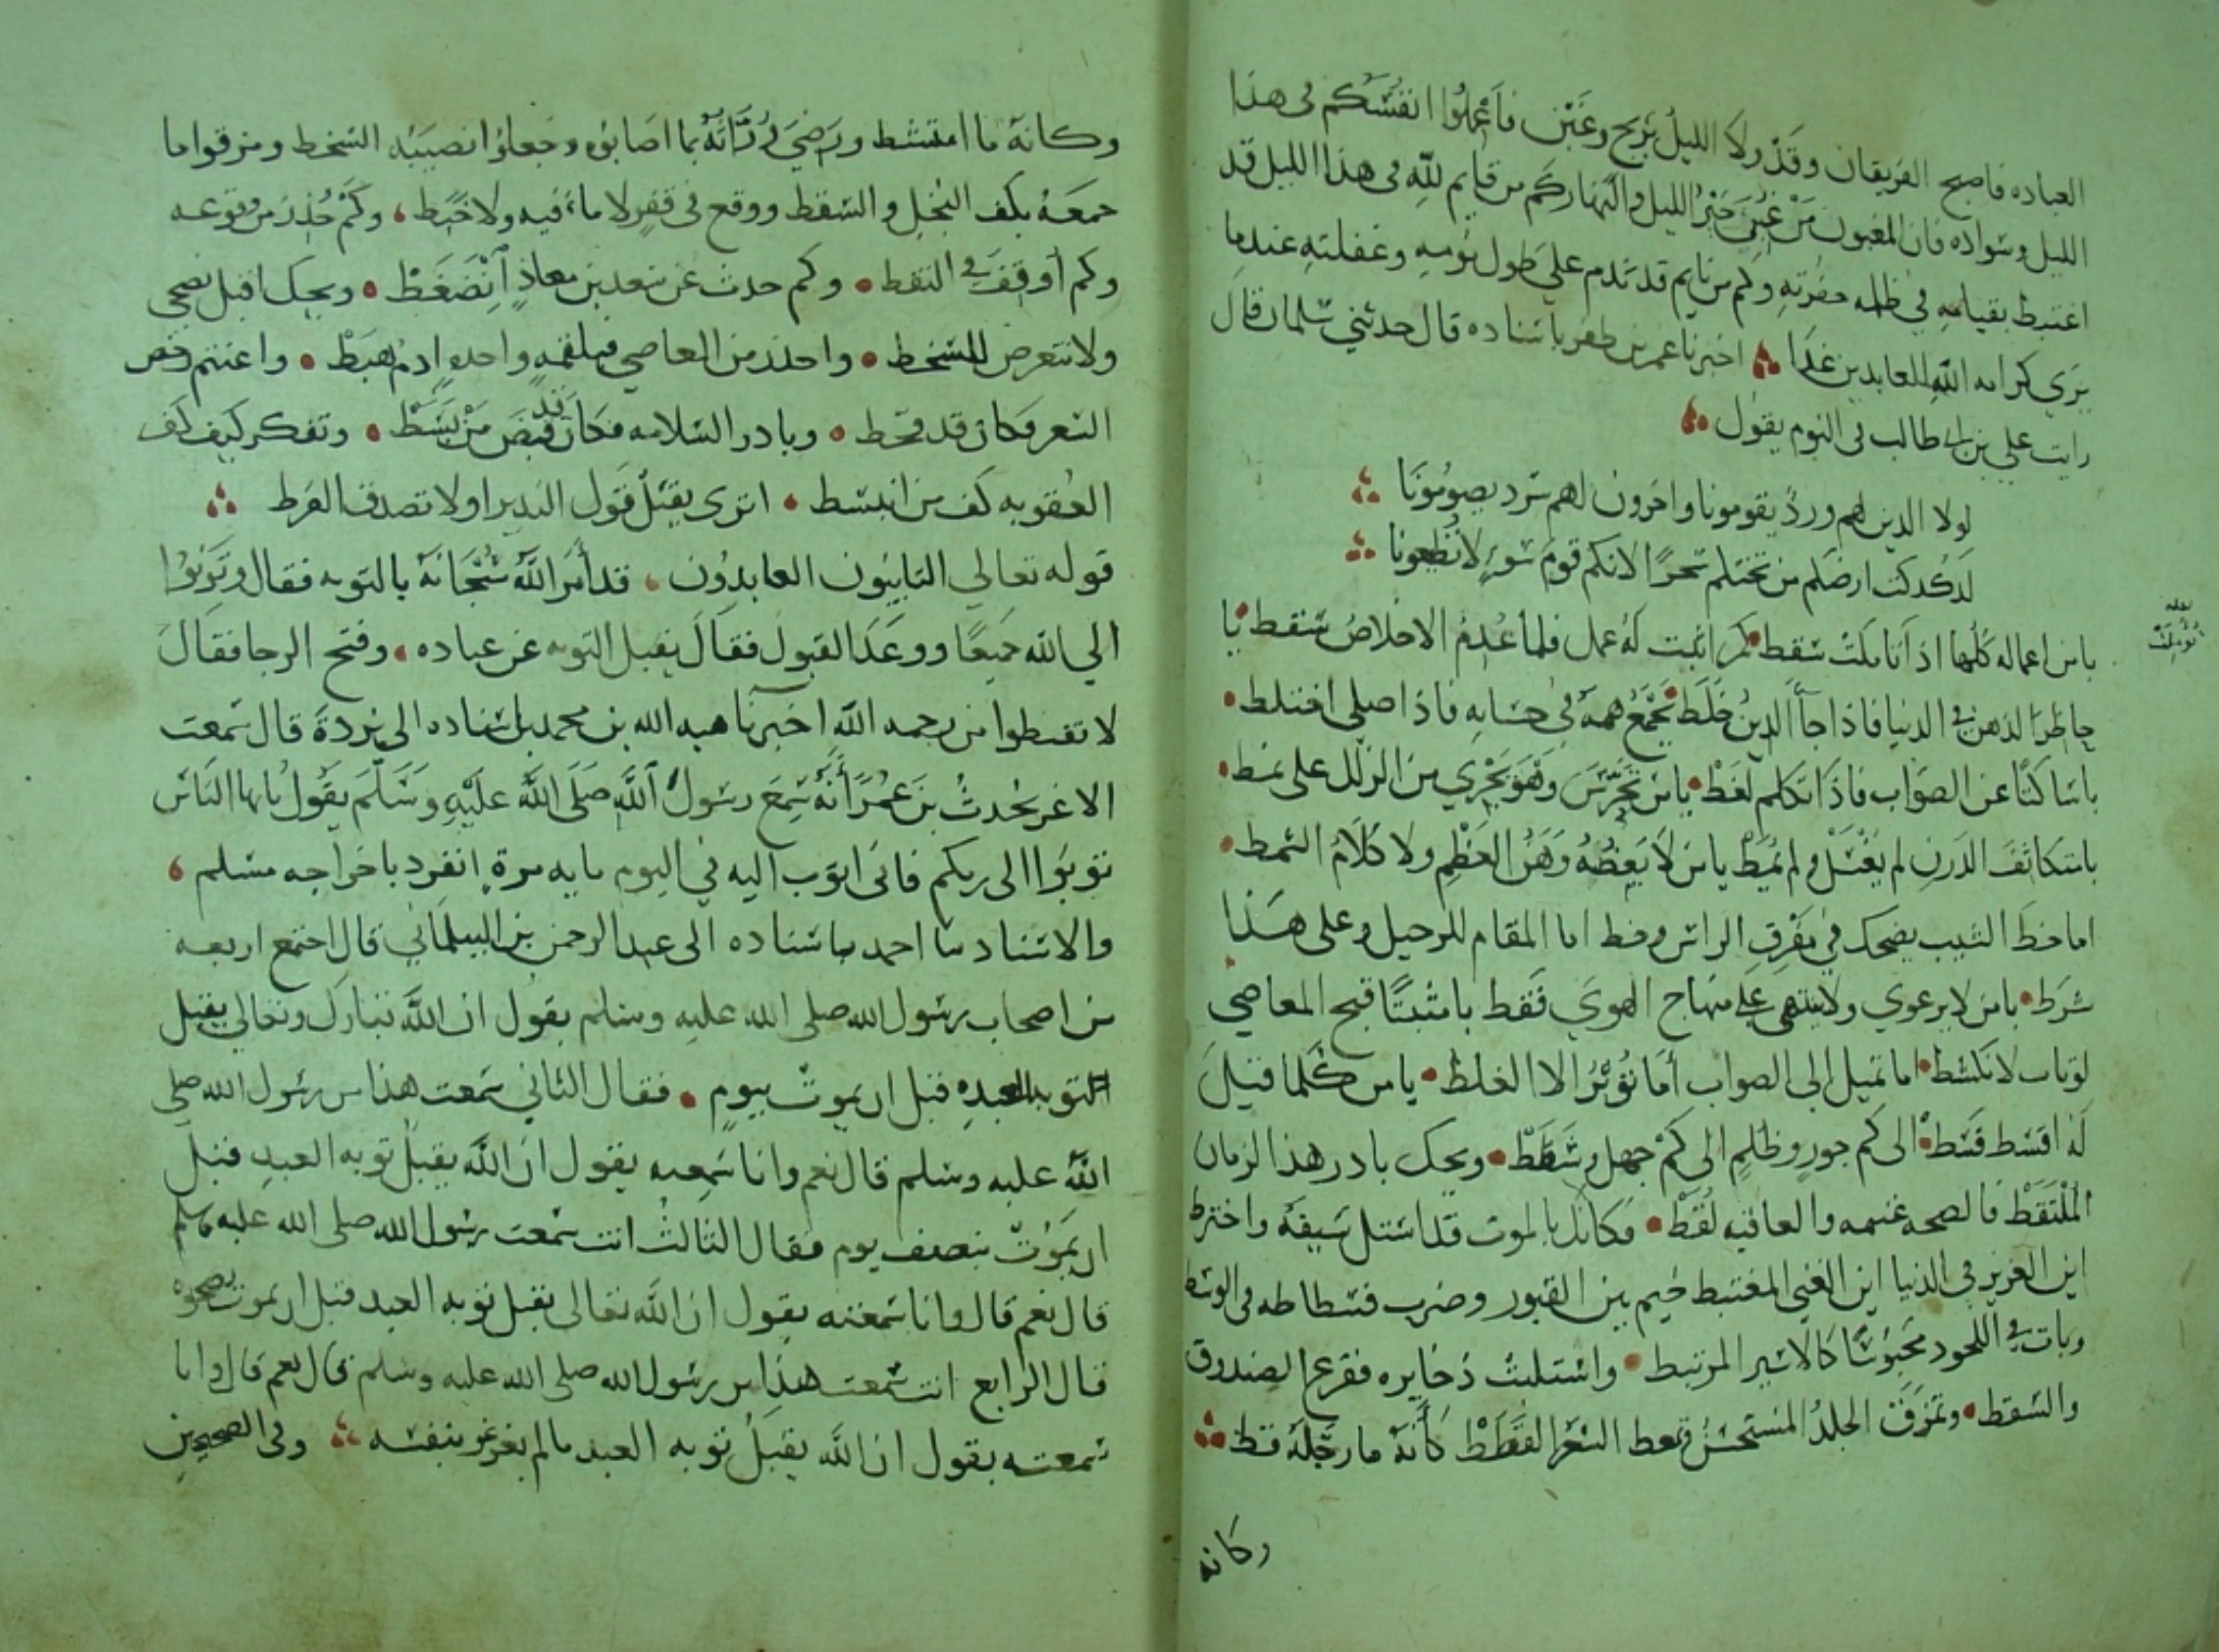 العباده فاصبح الفريقان وقد ولا الليل بربح وغبن فاعملوا انفسكم فى هذا
الليل وسواده فان المغبون من غبن خير الليل والنهار كم من قايم لله فى هذا الليل قد
اغتبط بقيامه في ظلمه حفرته وكم من نايم قد ندم علي طول نومه وغفلته عندما
يري كرامه الله للعابدين غدا اخبرنا عمر بن ظفر باسناده قال حدثني سلمان قال
رايت علي بن ابى طالب فى النوم يقول
لولا الذين لهم ورد يقومونا واخرون لهم سرد يصومونا
لدكدكت ارضكم من تحتكم سحرا لانكم قوم سوء لا تطيعونا
يامن اعماله كلها اذا تاملت سقط كم اثبت له عمل فلما عدم الاخلاص سقط يا
حاظر الذهن فى الدنيا فاذا جا الدين خلط يجمع همه في حسابه فاذا صلي اختلط
ياساكتا عن الصواب فاذا تكلم لغط يامن تجرس وهو يجري من الزلل على نمط
يامتكاثف الدرن لم يغتسل ولم يمط يامن لا يعظه وهن العظم ولا كلام الشمط
اما خط الشيب يضحك في مفرق الراس وخط اما المقام للرحيل وعلى هذا
شرط يامن لا يرعوي ولا ينتهى علي منهاج الهوي فقط يا مثبتا قبح المعاصي
لو تاب لانكشط اما تميل الى الصواب أما تؤثر الا الغلط يامن كلما قيل
له اقسط قسط الى كم جور وظلم الى كم جهل وشطط ويحك بادر هذا الزمان
الملتقط فالصحه غنيمه والعافيه لقط فكانك بالموت قد استل سيفه واخترط
اين العزيز في الدنيا اين الغني المغتبط خيم بين القبور وضرب فسطاطه فى الوسط
وبات فى اللحود محبوسا كالاسير المرتبط واستلبت ذخايره ففرغ الصندوق
والسقط وتمزق الجلد المستحسن وتمعط الشعر القطط كأنه ما رجله قط
وكانه
وكانه ما امتشط ورضي وراثه بما اصابوه وجعلوا نصيبه السخط ومزقوا ما
جمعه بكف البخل والسقط ووقع فى قفر لا ماء فيه ولا خبط وكم حذر من وقوعه
وكم أوقف فى النقط وكم حدث عن سعد بن معاذ انضغط ويحك اقبل نصحى
ولا تتعرض للسخط واحذر من المعاصي فبلقمه واحده ادم هبط واغتنم رخص
السعر فكان قد قحط وبادر السلامه فكان قد قبض من بسط وتفكر كيف كف
العقوبه كف من انبسط اترى يقبل قول النذير او لا تصدق الفرط
قوله تعالي التايبون العابدون قد أمر الله سبحانه بالتوبه فقال وتوبوا
الي الله جميعا ووعد القبول فقال يقبل التوبه عن عباده وفتح الرجا فقال
لا تقنطوا من رحمه الله اخبرنا هبه الله بن محمد باسناده الى بردة قال سمعت
الاغر يحدث بن عمر أنه سمع رسول الله صلى الله عليه وسلم يقول يايها الناس
توبوا الى ربكم فانى اتوب اليه في اليوم مايه مرة انفرد باخراجه مسلم
والاسناد ثنا احمد باسناده الى عبد الرحمن بن البيلماني قال اجتمع اربعه
من اصحاب رسول الله صلى الله عليه وسلم يقول ان الله تبارك وتعالي يقبل
التوبه العبده قبل ان يموت بيوم فقال الثاني سمعت هذا من رسول الله صلى
الله عليه وسلم قال نعم وانا سمعته يقول ان الله يقبل توبه العبد قبل
ان يموت بنصف يوم فقال الثالث انت سمعت رسول الله صلى الله عليه وسلم
قال نعم قال وانا سمعته يقول ان الله تعالى يقبل توبه العبد قبل ان يموت بضحوه
قال الرابع انت سمعت هذا من رسول الله صلى الله عليه وسلم قال نعم قال وانا
سمعته يقول ان الله يقبل توبه العبد مالم يغرغر بنفسه وفى الصحيحين